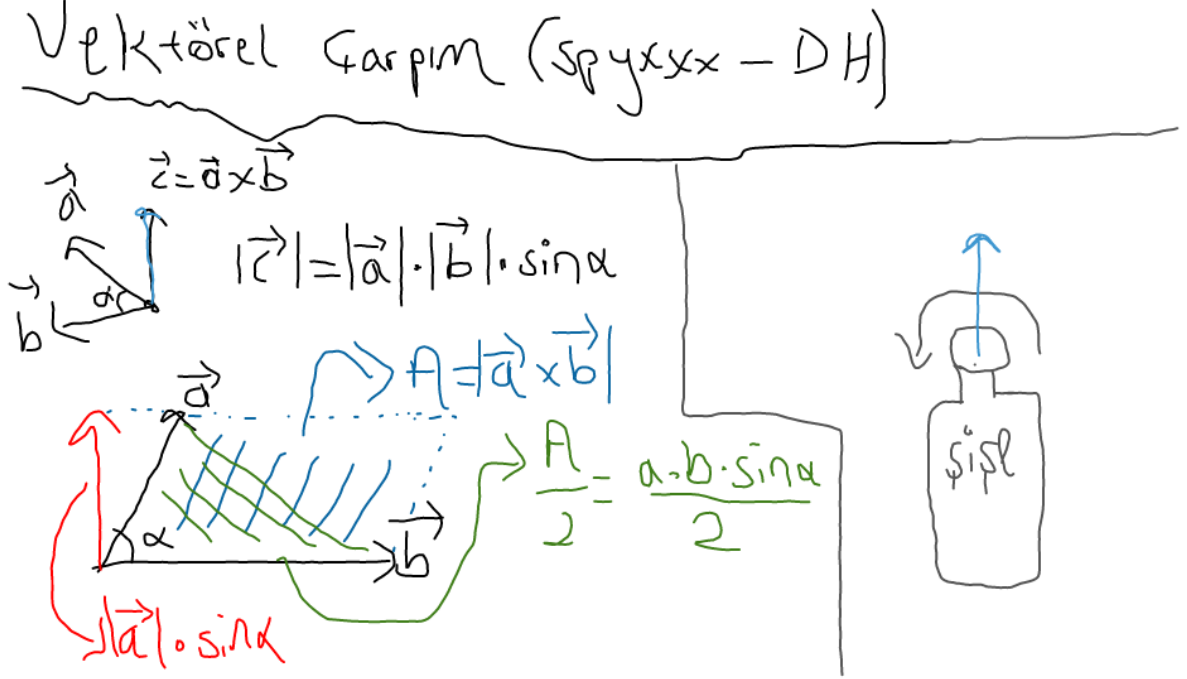 Vektörel Çarpım (spyxxx - DH)
c⃗ = a⃗ x b⃗
a⃗
α
b⃗
|c⃗| = |a⃗|.|b⃗|.sinα
A = |a⃗ x b⃗|
a⃗
α
b⃗
A/2 = a.b.sinα/2
|a⃗|.sinα
şişe